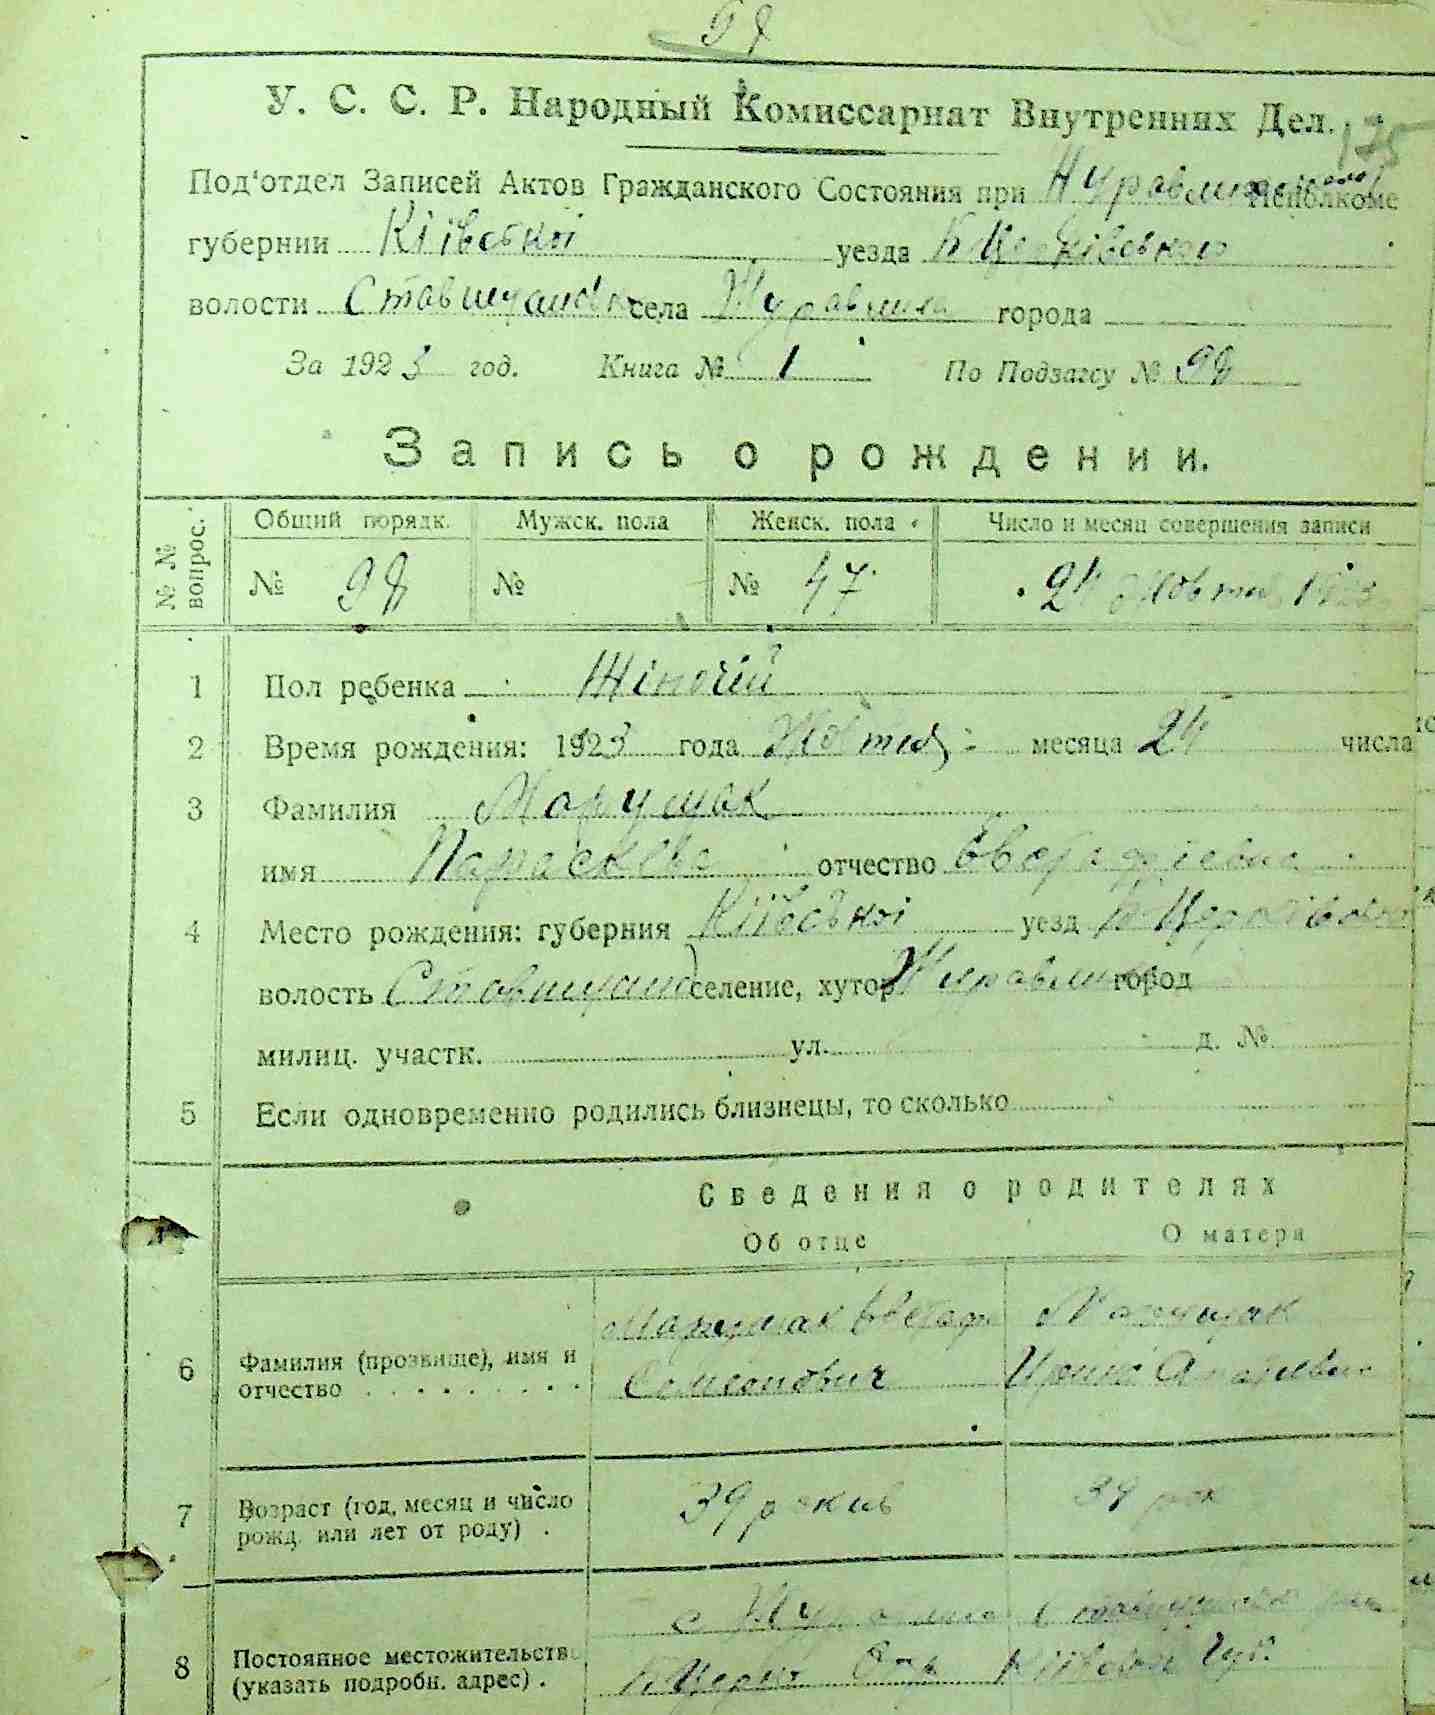 98
У. С. С. Р. Народный Комиссариат Внутренних Дел.
175
Под'отдел Записей Актов Гражданского Состояния при Исполкоме
губернии Київської уезда Б Церківського
волости села Журавлиха города
За 1923 год. Книга № 1 По Подзагсу № 98
Запись о рождении.
№ № вопрос. Общий порядк. Мужск. пола Женск. пола Число и месяц совершения записи
№ 98 № № 47 24 Жовтня 1923
1 Пол ребенка Жіночий
2 Время рождения: 1923 года Жовтня месяца 24 числа
3 Фамилия Марущак
имя Параскева отчество
4 Место рождения: губерния Київської уезд Б Церківського
волость селение, хутор город
милиц. участк. ул. д. №
5 Если одновременно родились близнецы, то сколько
Сведения о родителях
Об отце О матери
6 Фамилия (прозвище), имя и отчество
Марущак Марущак
7 Возраст (год, месяц и число рожд. или лет от роду) .
39 років
8 Постоянное местожительство (указать подробн. адрес) .
с
Б Церко Окр Київської Губ.